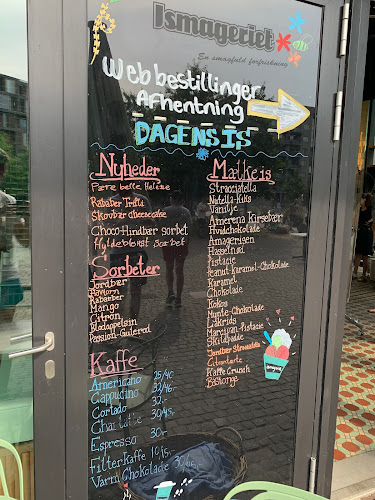 Ismageriet
En smagfuld forfriskning
Webbestillinger
Afhentning
DAGENS IS
Nyheder
Pære belle Helene
Rabarber Trifli
Skovbær cheesecake
Choco-Hindbær sorbet
Hyldeblomst sorbet
Sorbeter
Jordbær
Havtorn
Rabarber
Mango
Citron
Blodappelsin
Passion-Gulerod
Kaffe
Americano 25/40
Cappucino 32/46
Cortado 32.-
Chai latte 30/45,-
Espresso 30,-
Filterkaffe 10,15,-
Varm Chokolade 30,45,-
Mælkeis
Stracciatella
Nutella-Kiks
Vanilje
Amerena Kirsebær
Hvidchokolade
Amagerisen
Hasselnød
Pistacie
Peanut-karamel-Chokolade
Karamel
Chokolade
Kokos
Mynte-Chokolade
Lakrids
Marcipan-Pistacie
Skildpadde
Jordbær Stracciatella
Citrontærte
Kaffe Crunch
Bastogne